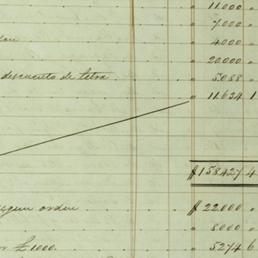 " 11.000 "
" 7.000 "
" 4.000 "
" 20000 "
descuento de letra " 5.088 "
" 11.634 1
$ 158.427 4
segun orden $ 22.000 "
" 8000 "
or £ 1000. " 5274 6